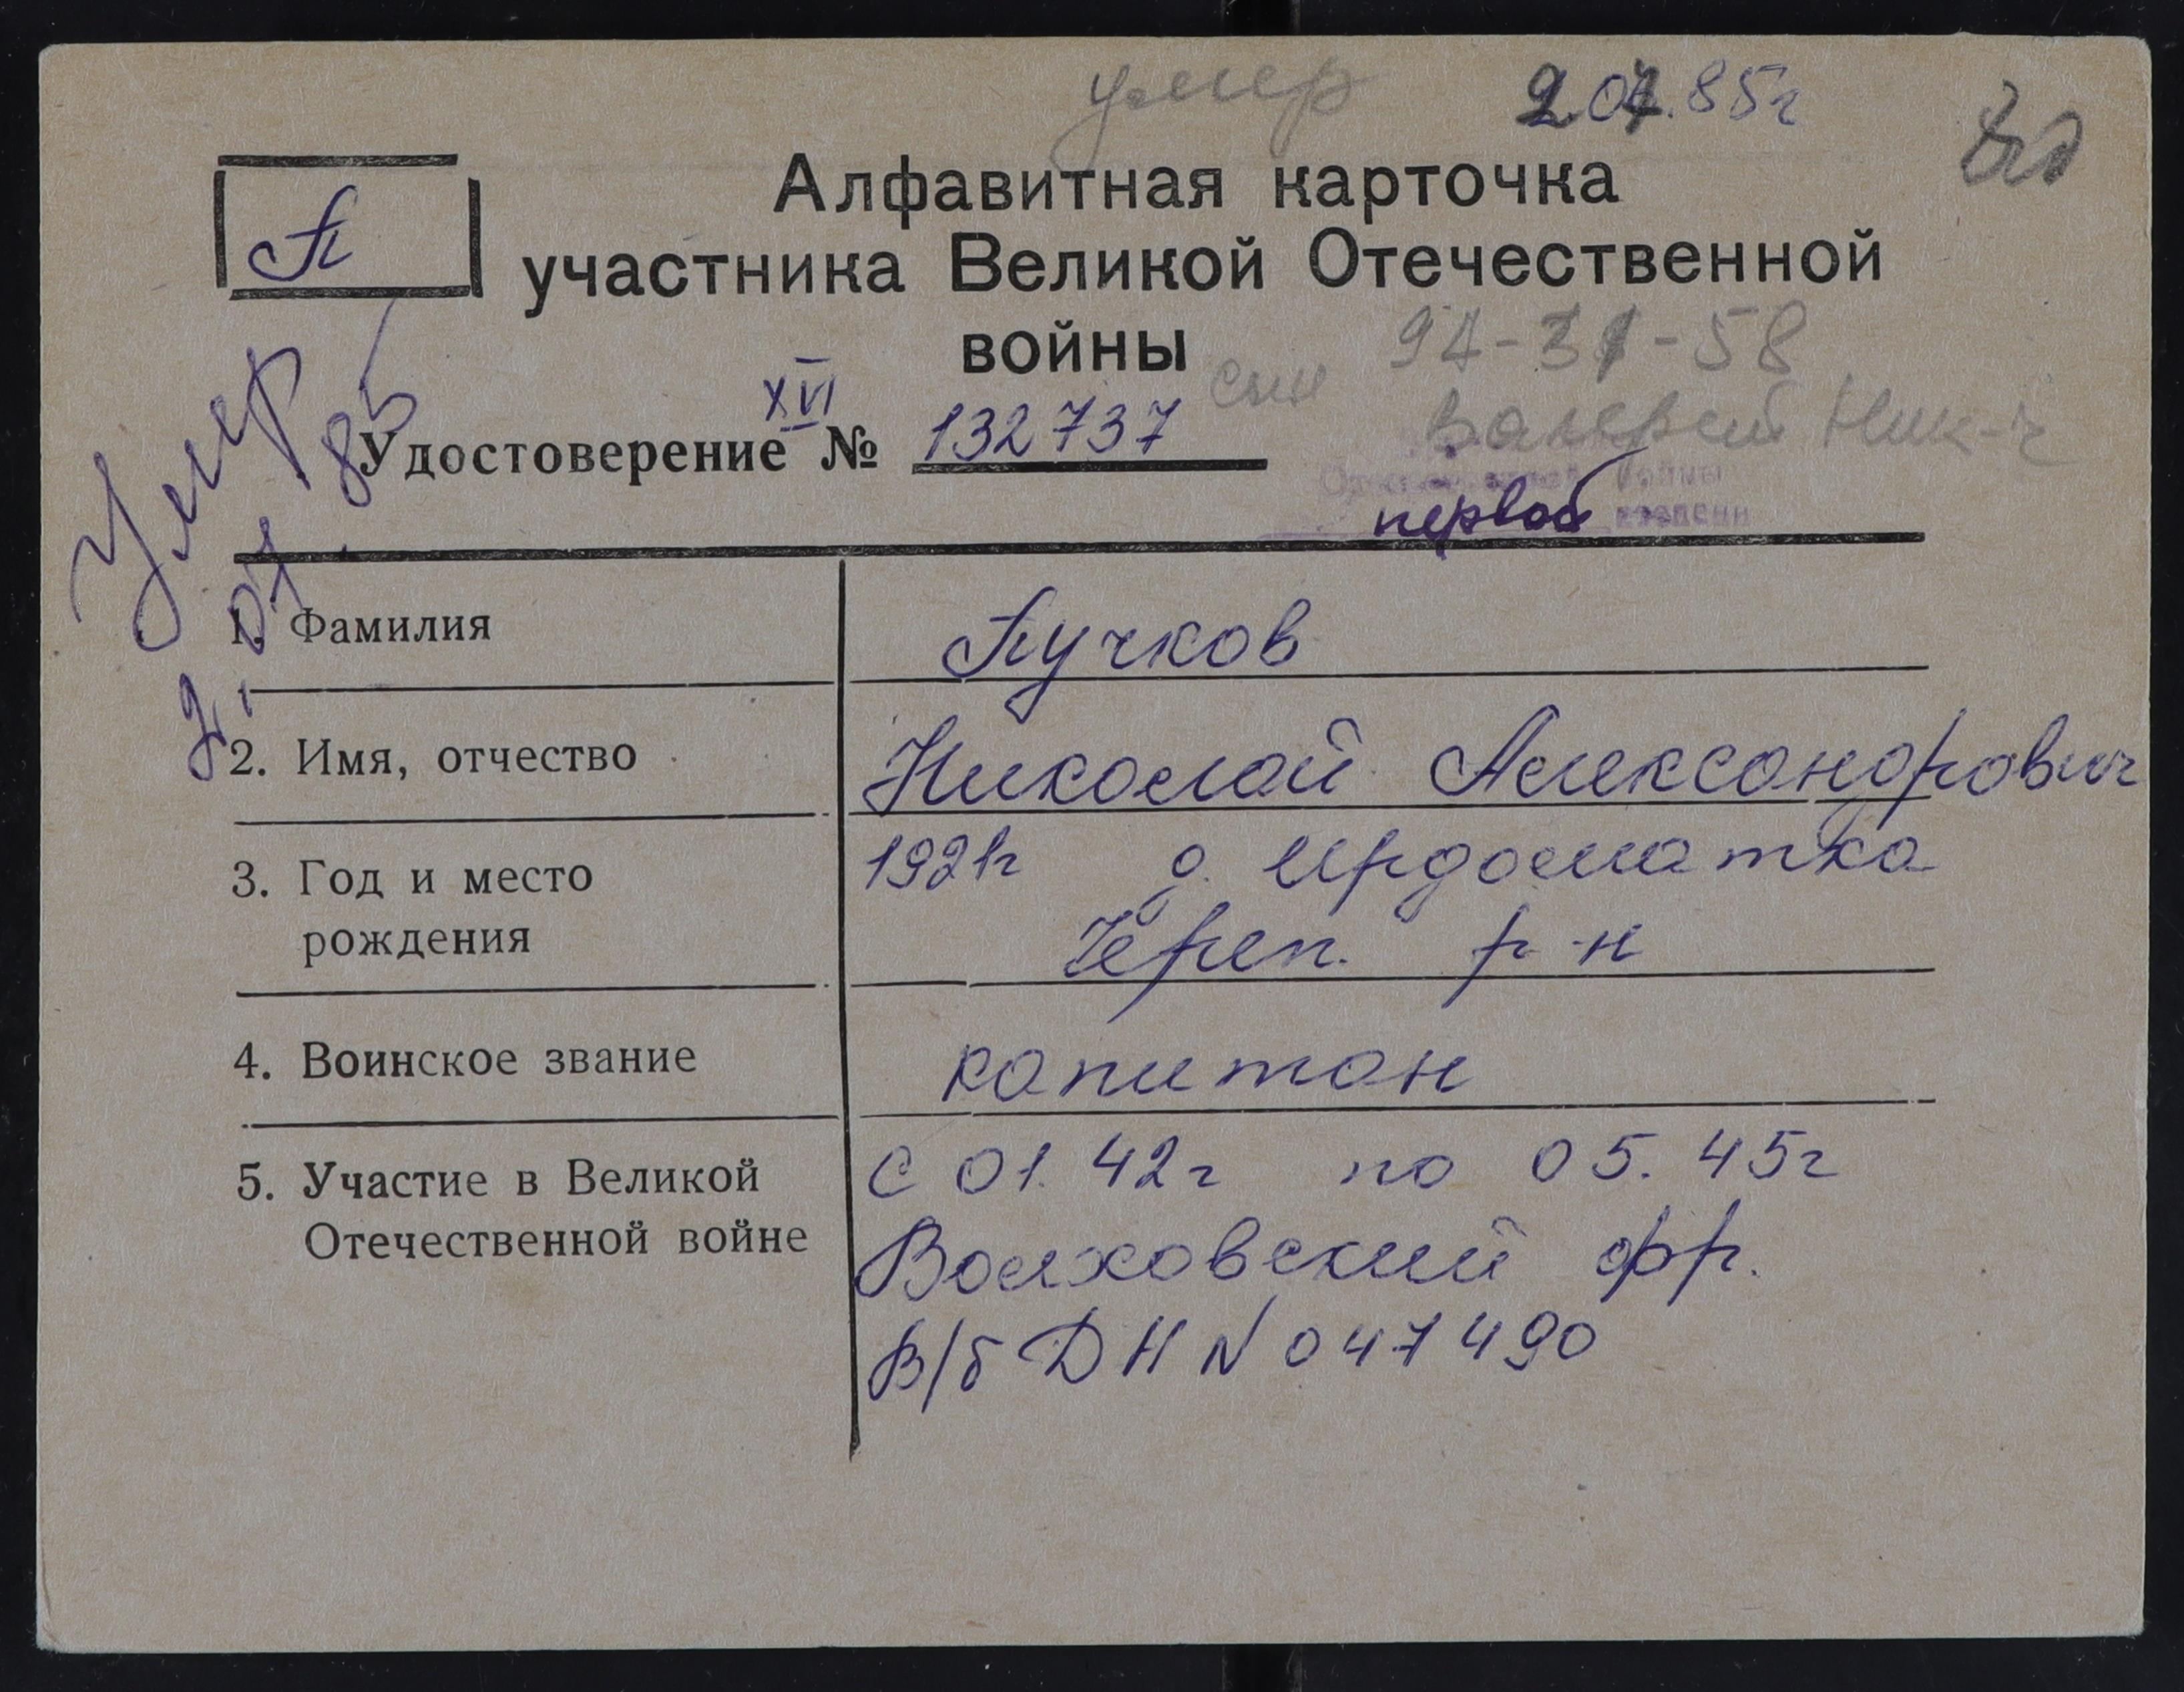 умер 2.07.85г
П
Алфавитная карточка
участника Великой Отечественной
войны
94-31-58
сын Валерий Ник-ч
XVI
Удостоверение № 132737
Отечественной войны
первой степени
Умер
2. 07. 85
1. Фамилия Пучков
2. Имя, отчество Николай Александрович
3. Год и место рождения 1921г д. Ирдоматка
Череп. р-н
4. Воинское звание капитан
5. Участие в Великой Отечественной войне с 01.42г по 05.45г
Волховский фр.
В/б ДН N 047490